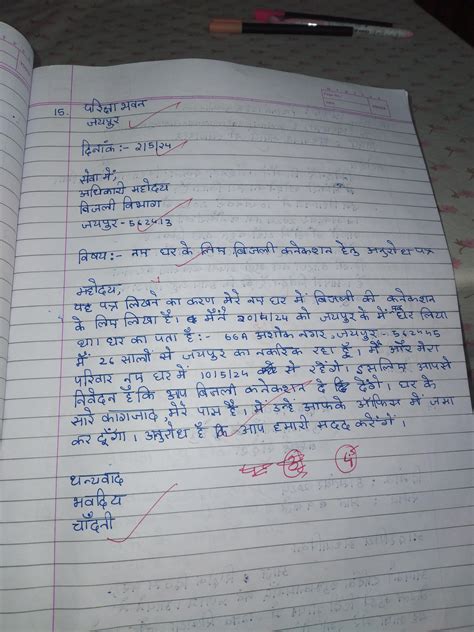 15. परिक्षा भवन
जयपुर
दिनांक:- 2/5/24
सेवा में,
अधिकारी महोदय
बिजली विभाग
जयपुर - 562413
विषय:- नए घर के लिए बिजली कनेकशन हेतु अनुरोध पत्र
म्होदय,
यह पत्र लिखने का करण मेरे नए घर में बिजली की कनेकशन
के लिए लिखा है। मैंने 20/4/24 को जयपुर के में नए घर लिया
था। घर का पता है:- 66A अशोक नगर, जयपुर - 562445
में 26 सालो से जयपुर का नकरिक रहा हूँ। मैं और मेरा
परिवार नए घर में 10/5/24 से रहेगें। इसलिए आपसे
निवेदन है कि आप बिजली कनेकशन दे देंगे। घर के
सारे कागजाद, मेरे पास है। में उन्हें आपके ऑफिस में जमा
कर दूँगा। अनुरोध है कि आप हमारी मदद करेंगें।
धन्यवाद
भवदिय
चाँदनी